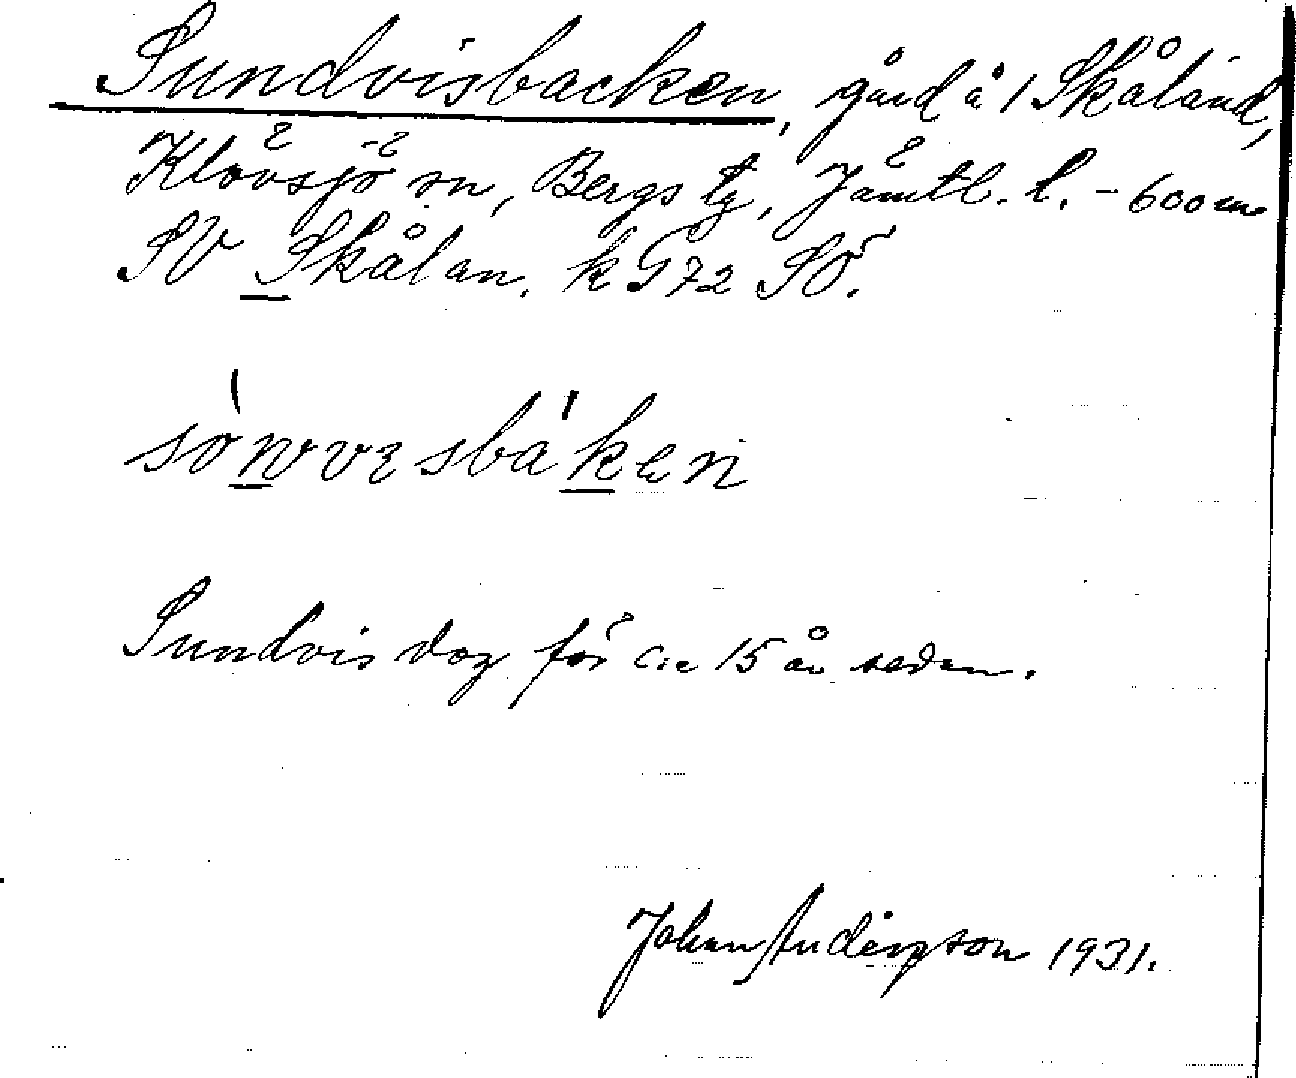 Sundvisbacken, gård å 1 Skåland,
Klövsjö sn, Bergs tg, Jämtl. l. - 600 m
SV Skålan. k G72 SÖ.
sonnvesbaken
Sundvis dog för c:a 15 år sedan.
Johan Anderpson 1931.